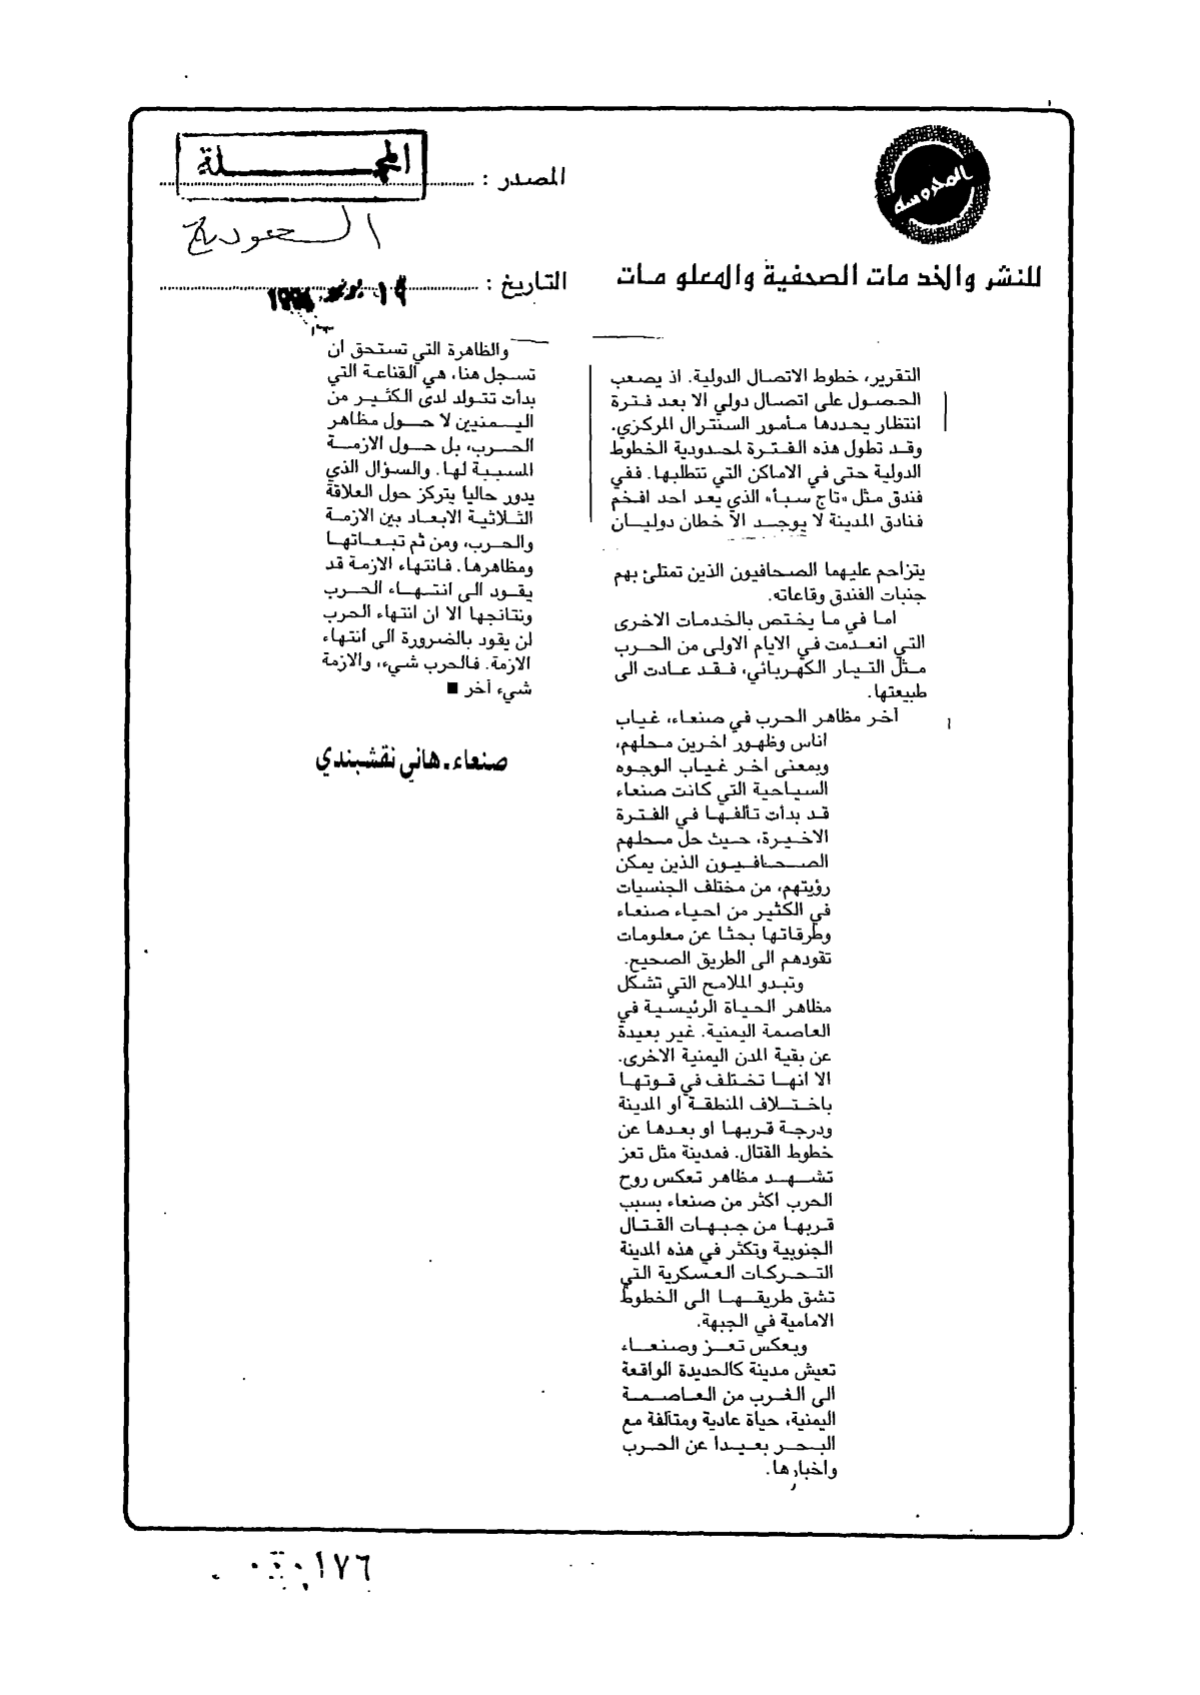 المحروسة
للنشر والخدمات الصحفية والمعلومات
المصدر :
المجلة
السعودية
التاريخ :
١٩ يونيو
التقرير، خطوط الاتصال الدولية. اذ يصعب
الحصول على اتصال دولي الا بعد فترة
انتظار يحددها مأمور السنترال المركزي.
وقد تطول هذه الفترة لمحدودية الخطوط
الدولية حتى في الاماكن التي تتطلبها. ففي
فندق مثل «تاج سبأ» الذي يعد احد افخم
فنادق المدينة لا يوجد الا خطان دوليان
يتزاحم عليهما الصحافيون الذين تمتلئ بهم
جنبات الفندق وقاعاته.
اما في ما يختص بالخدمات الاخرى
التي انعدمت في الايام الاولى من الحرب
مثل التيار الكهربائي، فقد عادت الى
طبيعتها.
آخر مظاهر الحرب في صنعاء، غياب
اناس وظهور اخرين محلهم،
وبمعنى آخر غياب الوجوه
السياحية التي كانت صنعاء
قد بدأت تألفها في الفترة
الاخيرة، حيث حل محلهم
الصحافيون الذين يمكن
رؤيتهم، من مختلف الجنسيات
في الكثير من احياء صنعاء
وطرقاتها بحثا عن معلومات
تقودهم الى الطريق الصحيح.
وتبدو الملامح التي تشكل
مظاهر الحياة الرئيسية في
العاصمة اليمنية. غير بعيدة
عن بقية المدن اليمنية الاخرى.
الا انها تختلف في قوتها
باختلاف المنطقة او المدينة
ودرجة قربها او بعدها عن
خطوط القتال. فمدينة مثل تعز
تشهد مظاهر تعكس روح
الحرب اكثر من صنعاء بسبب
قربها من جبهات القتال
الجنوبية وتكثر في هذه المدينة
التحركات العسكرية التي
تشق طريقها الى الخطوط
الامامية في الجبهة.
وبعكس تعز وصنعاء
تعيش مدينة كالحديدة الواقعة
الى الغرب من العاصمة
اليمنية، حياة عادية ومتآلفة مع
البحر بعيدا عن الحرب
واخبارها.
والظاهرة التي تستحق ان
تسجل هنا، هي القناعة التي
بدأت تتولد لدى الكثير من
اليمنيين لا حول مظاهر
الحرب، بل حول الازمة
المسببة لها. والسؤال الذي
يدور حاليا يتركز حول العلاقة
الثلاثية الابعاد بين الازمة
والحرب، ومن ثم تبعاتها
ومظاهرها. فانتهاء الازمة قد
يقود الى انتهاء الحرب
ونتائجها الا ان انتهاء الحرب
لن يقود بالضرورة الى انتهاء
الازمة. فالحرب شيء، والازمة
شيء آخر ■
صنعاء ـ هاني نقشبندي
١٧٦